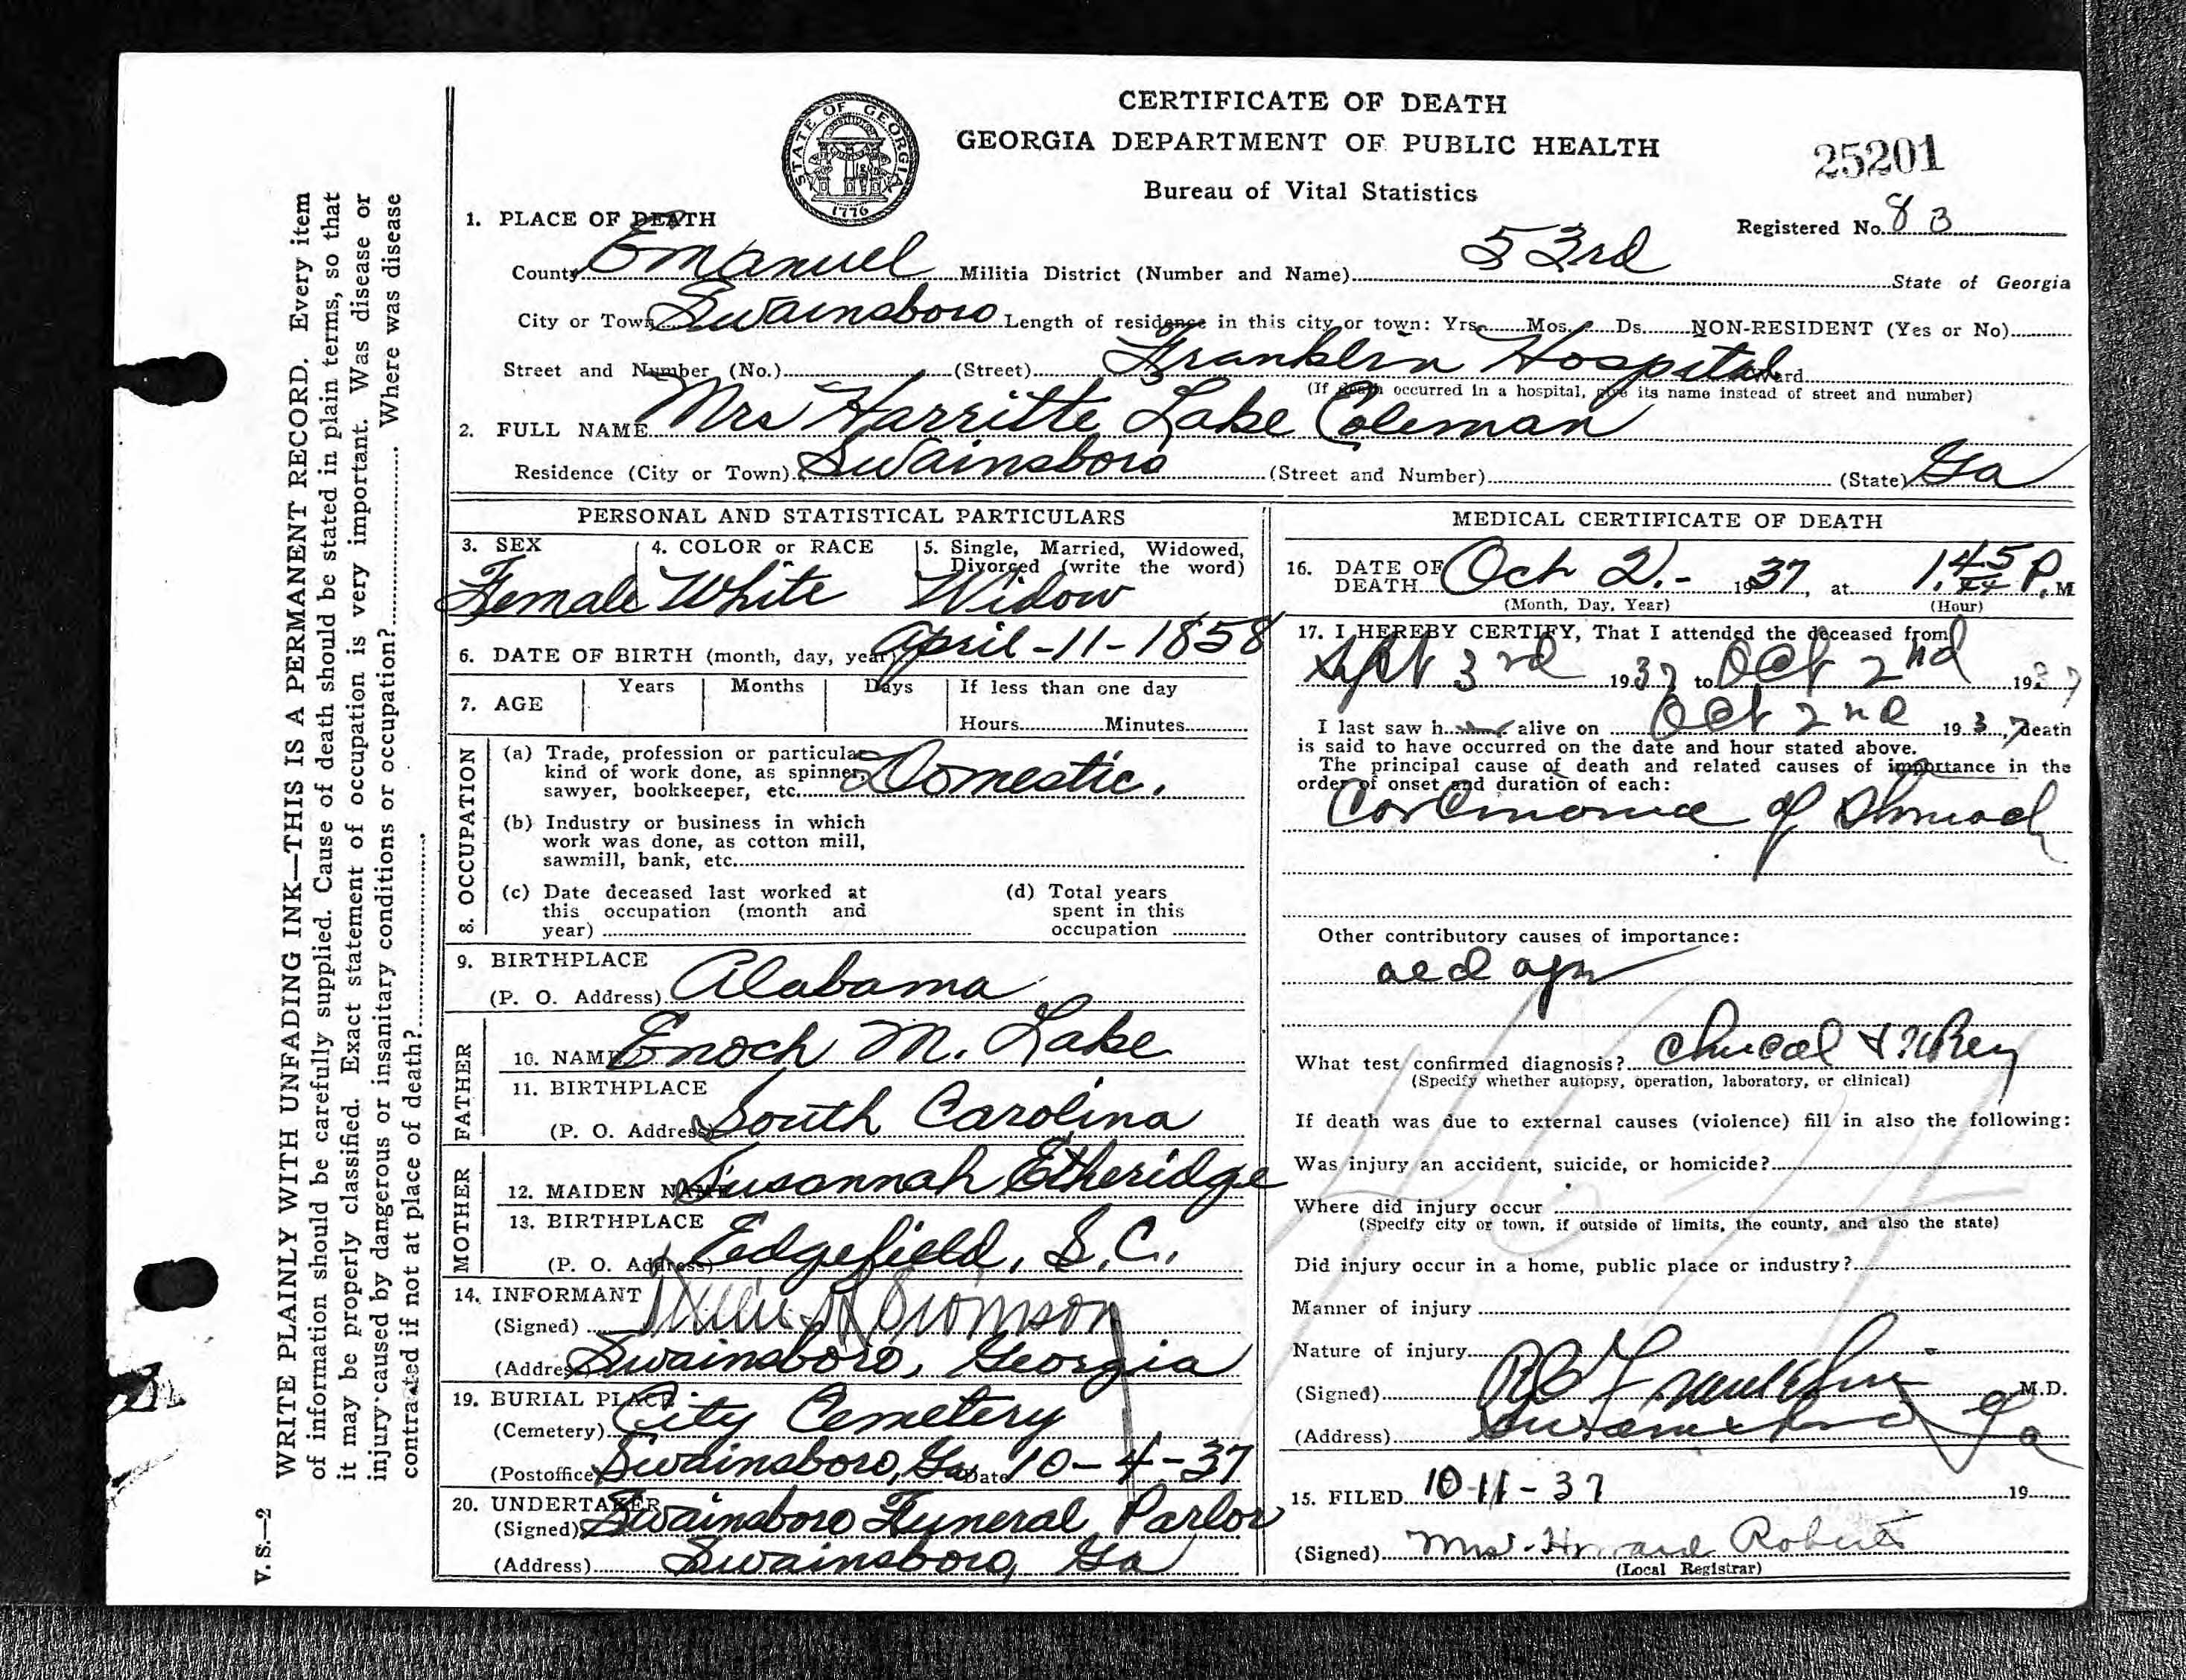 CERTIFICATE OF DEATH
GEORGIA DEPARTMENT OF PUBLIC HEALTH
Bureau of Vital Statistics
STATE OF GEORGIA
CONSTITUTION
1776
25201
Registered No. 83
1. PLACE OF DEATH
County Emanuel Militia District (Number and Name) 53rd State of Georgia
City or Town Swainsboro Length of residence in this city or town: Yrs. Mos. Ds. NON-RESIDENT (Yes or No)
Street and Number (No.) (Street) Franklin Hospital Ward
(If death occurred in a hospital, give its name instead of street and number)
2. FULL NAME Mrs Harritte Lake Coleman
Residence (City or Town) Swainsboro (Street and Number) (State) Ga
PERSONAL AND STATISTICAL PARTICULARS
3. SEX 4. COLOR or RACE 5. Single, Married, Widowed, Divorced (write the word)
Female White Widow
6. DATE OF BIRTH (month, day, year) April-11-1858
7. AGE Years Months Days If less than one day
Hours Minutes
8. OCCUPATION
(a) Trade, profession or particular
kind of work done, as spinner,
sawyer, bookkeeper, etc. Domestic.
(b) Industry or business in which
work was done, as cotton mill,
sawmill, bank, etc.
(c) Date deceased last worked at (d) Total years
this occupation (month and spent in this
year) occupation
9. BIRTHPLACE
(P. O. Address) Alabama
FATHER
10. NAME Enoch M. Lake
11. BIRTHPLACE
(P. O. Address) South Carolina
MOTHER
12. MAIDEN NAME Susannah Etheridge
13. BIRTHPLACE
(P. O. Address) Edgefield, S.C.,
14. INFORMANT
(Signed)
(Address) Swainsboro, Georgia
19. BURIAL PLACE
(Cemetery) City Cemetery
(Postoffice) Swainsboro, Ga Date 10-4-37
20. UNDERTAKER
(Signed) Swainsboro Funeral Parlor
(Address) Swainsboro, Ga
MEDICAL CERTIFICATE OF DEATH
16. DATE OF
DEATH Oct 2.- 1937, at 1.45 P.M
(Month, Day, Year) (Hour)
17. I HEREBY CERTIFY, That I attended the deceased from
Sept 3rd 1937 to Oct 2nd 1937
I last saw her alive on Oct 2nd 1937, death
is said to have occurred on the date and hour stated above.
The principal cause of death and related causes of importance in the
order of onset and duration of each:
Carcinoma of Stomach
Other contributory causes of importance:
old age
What test confirmed diagnosis? Clinical & X Ray
(Specify whether autopsy, operation, laboratory, or clinical)
If death was due to external causes (violence) fill in also the following:
Was injury an accident, suicide, or homicide?
Where did injury occur
(Specify city or town, if outside of limits, the county, and also the state)
Did injury occur in a home, public place or industry?
Manner of injury
Nature of injury
(Signed) Franklin M.D.
(Address) Swainsboro Ga
15. FILED 10-11-37 19
(Signed) Mrs. Howard Roberts
(Local Registrar)
WRITE PLAINLY WITH UNFADING INK—THIS IS A PERMANENT RECORD. Every item
of information should be carefully supplied. Cause of death should be stated in plain terms, so that
it may be properly classified. Exact statement of occupation is very important. Was disease or
injury caused by dangerous or insanitary conditions or occupation? Where was disease
contracted if not at place of death?
V. S.—2